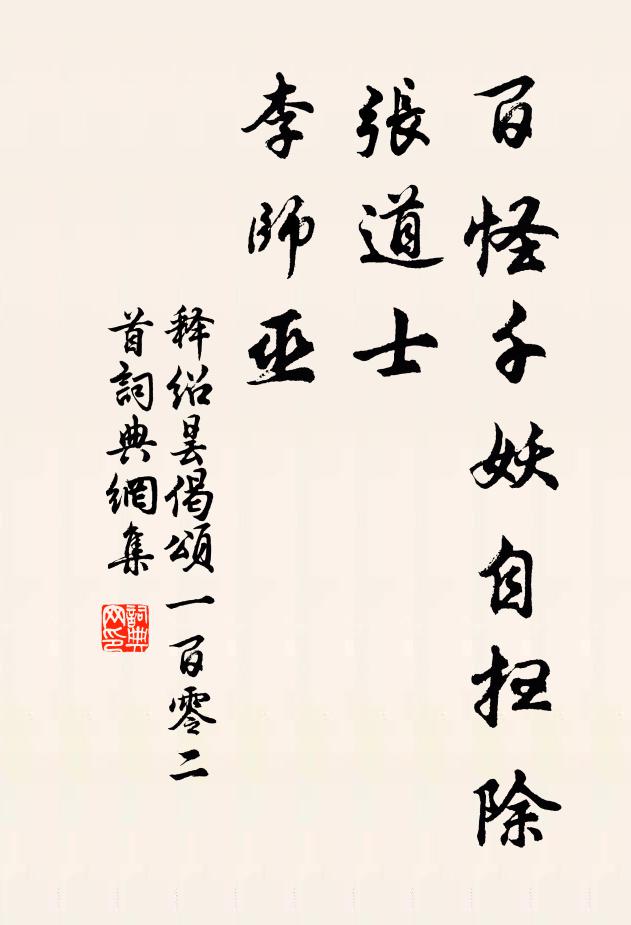 百怪千妖自扫除
張道士
李師巫
释绍昙偈頌一百零二
首詞典網集
詞典网印